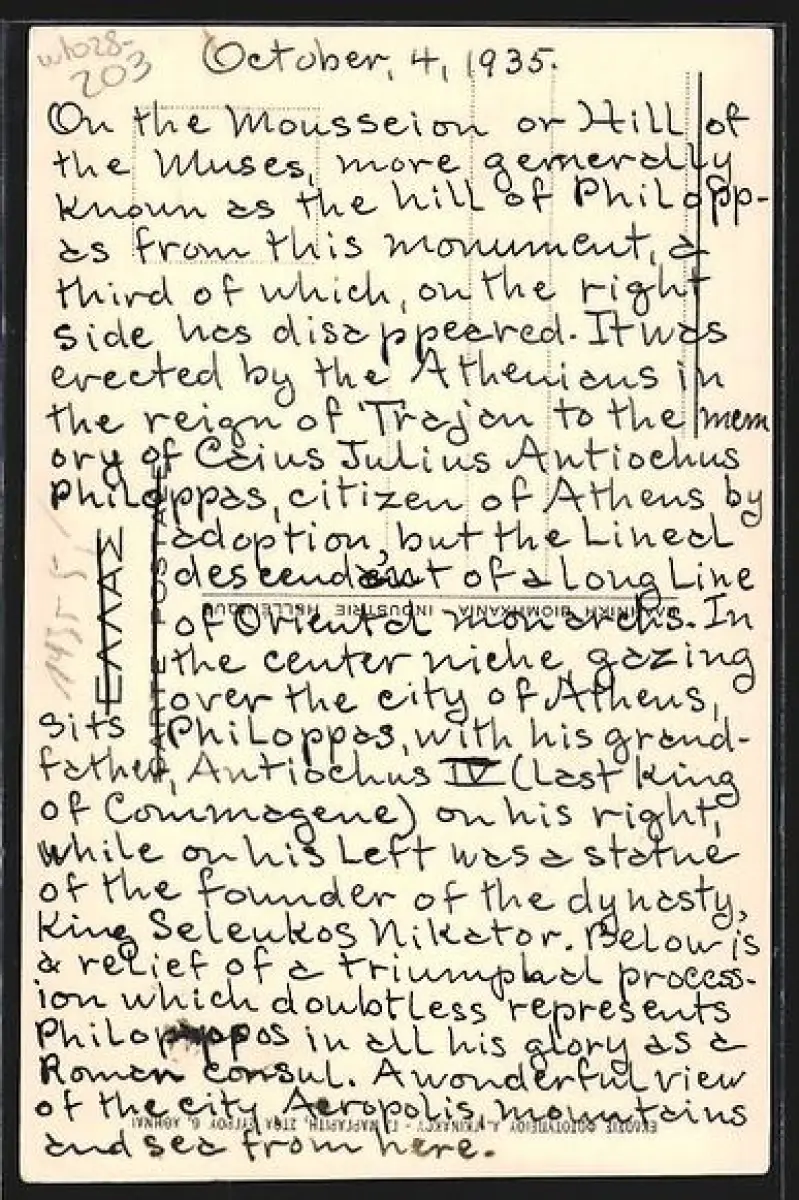 203
October, 4, 1935.
On the Mousseion or Hill of
the Muses, more generally
known as the hill of Philopp-
as from this monument, a
third of which, on the right
side has disappeared. It was
erected by the Athenians in
the reign of Trajan to the mem
ory of Caius Julius Antiochus
Philoppas, citizen of Athens by
adoption, but the Lineal
descendant of a long Line
of Oriental monarchs. In
the center niche, gazing
over the city of Athens,
sits Philoppas, with his grand-
father, Antiochus IV (last king
of Commagene) on his right,
while on his Left was a statue
of the founder of the dynasty,
King Seleukos Nikator. Below is
a relief of a triumphal process-
ion which doubtless represents
Philoppapos in all his glory as a
Roman consul. A wonderful view
of the city, Acropolis, mountains
and sea from here.
ΕΛΛΑΣ
CARTE POSTALE
ΕΛΛΗΝΙΚΗ ΒΙΟΜΗΧΑΝΙΑ - INDUSTRIE HELLENIQUE